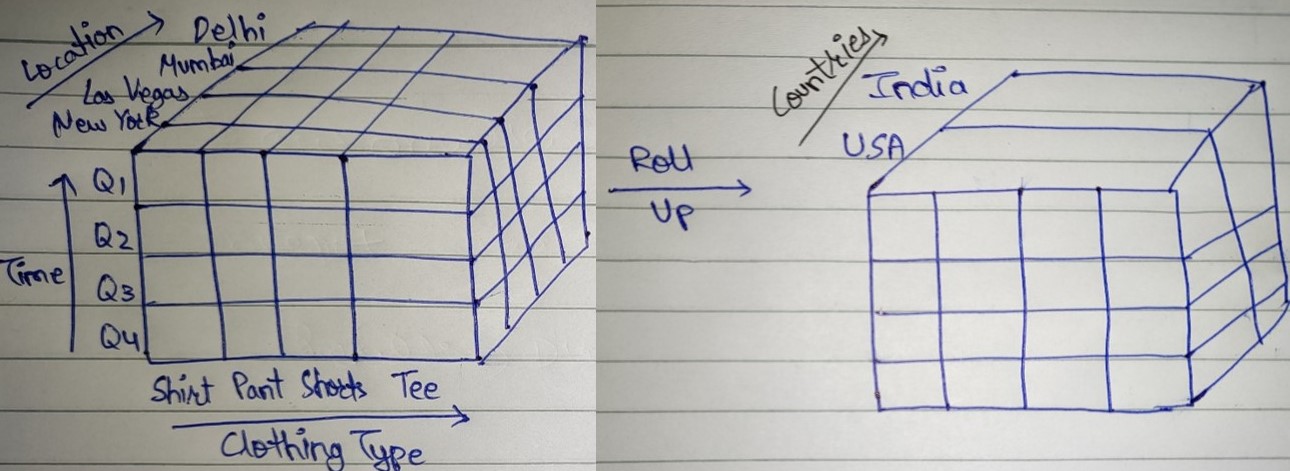 Location
Delhi
Mumbai
Las Vegas
New York
Q1
Q2
Q3
Q4
Time
Shirt Pant Shorts Tee
Clothing Type
Roll
Up
Countries
India
USA